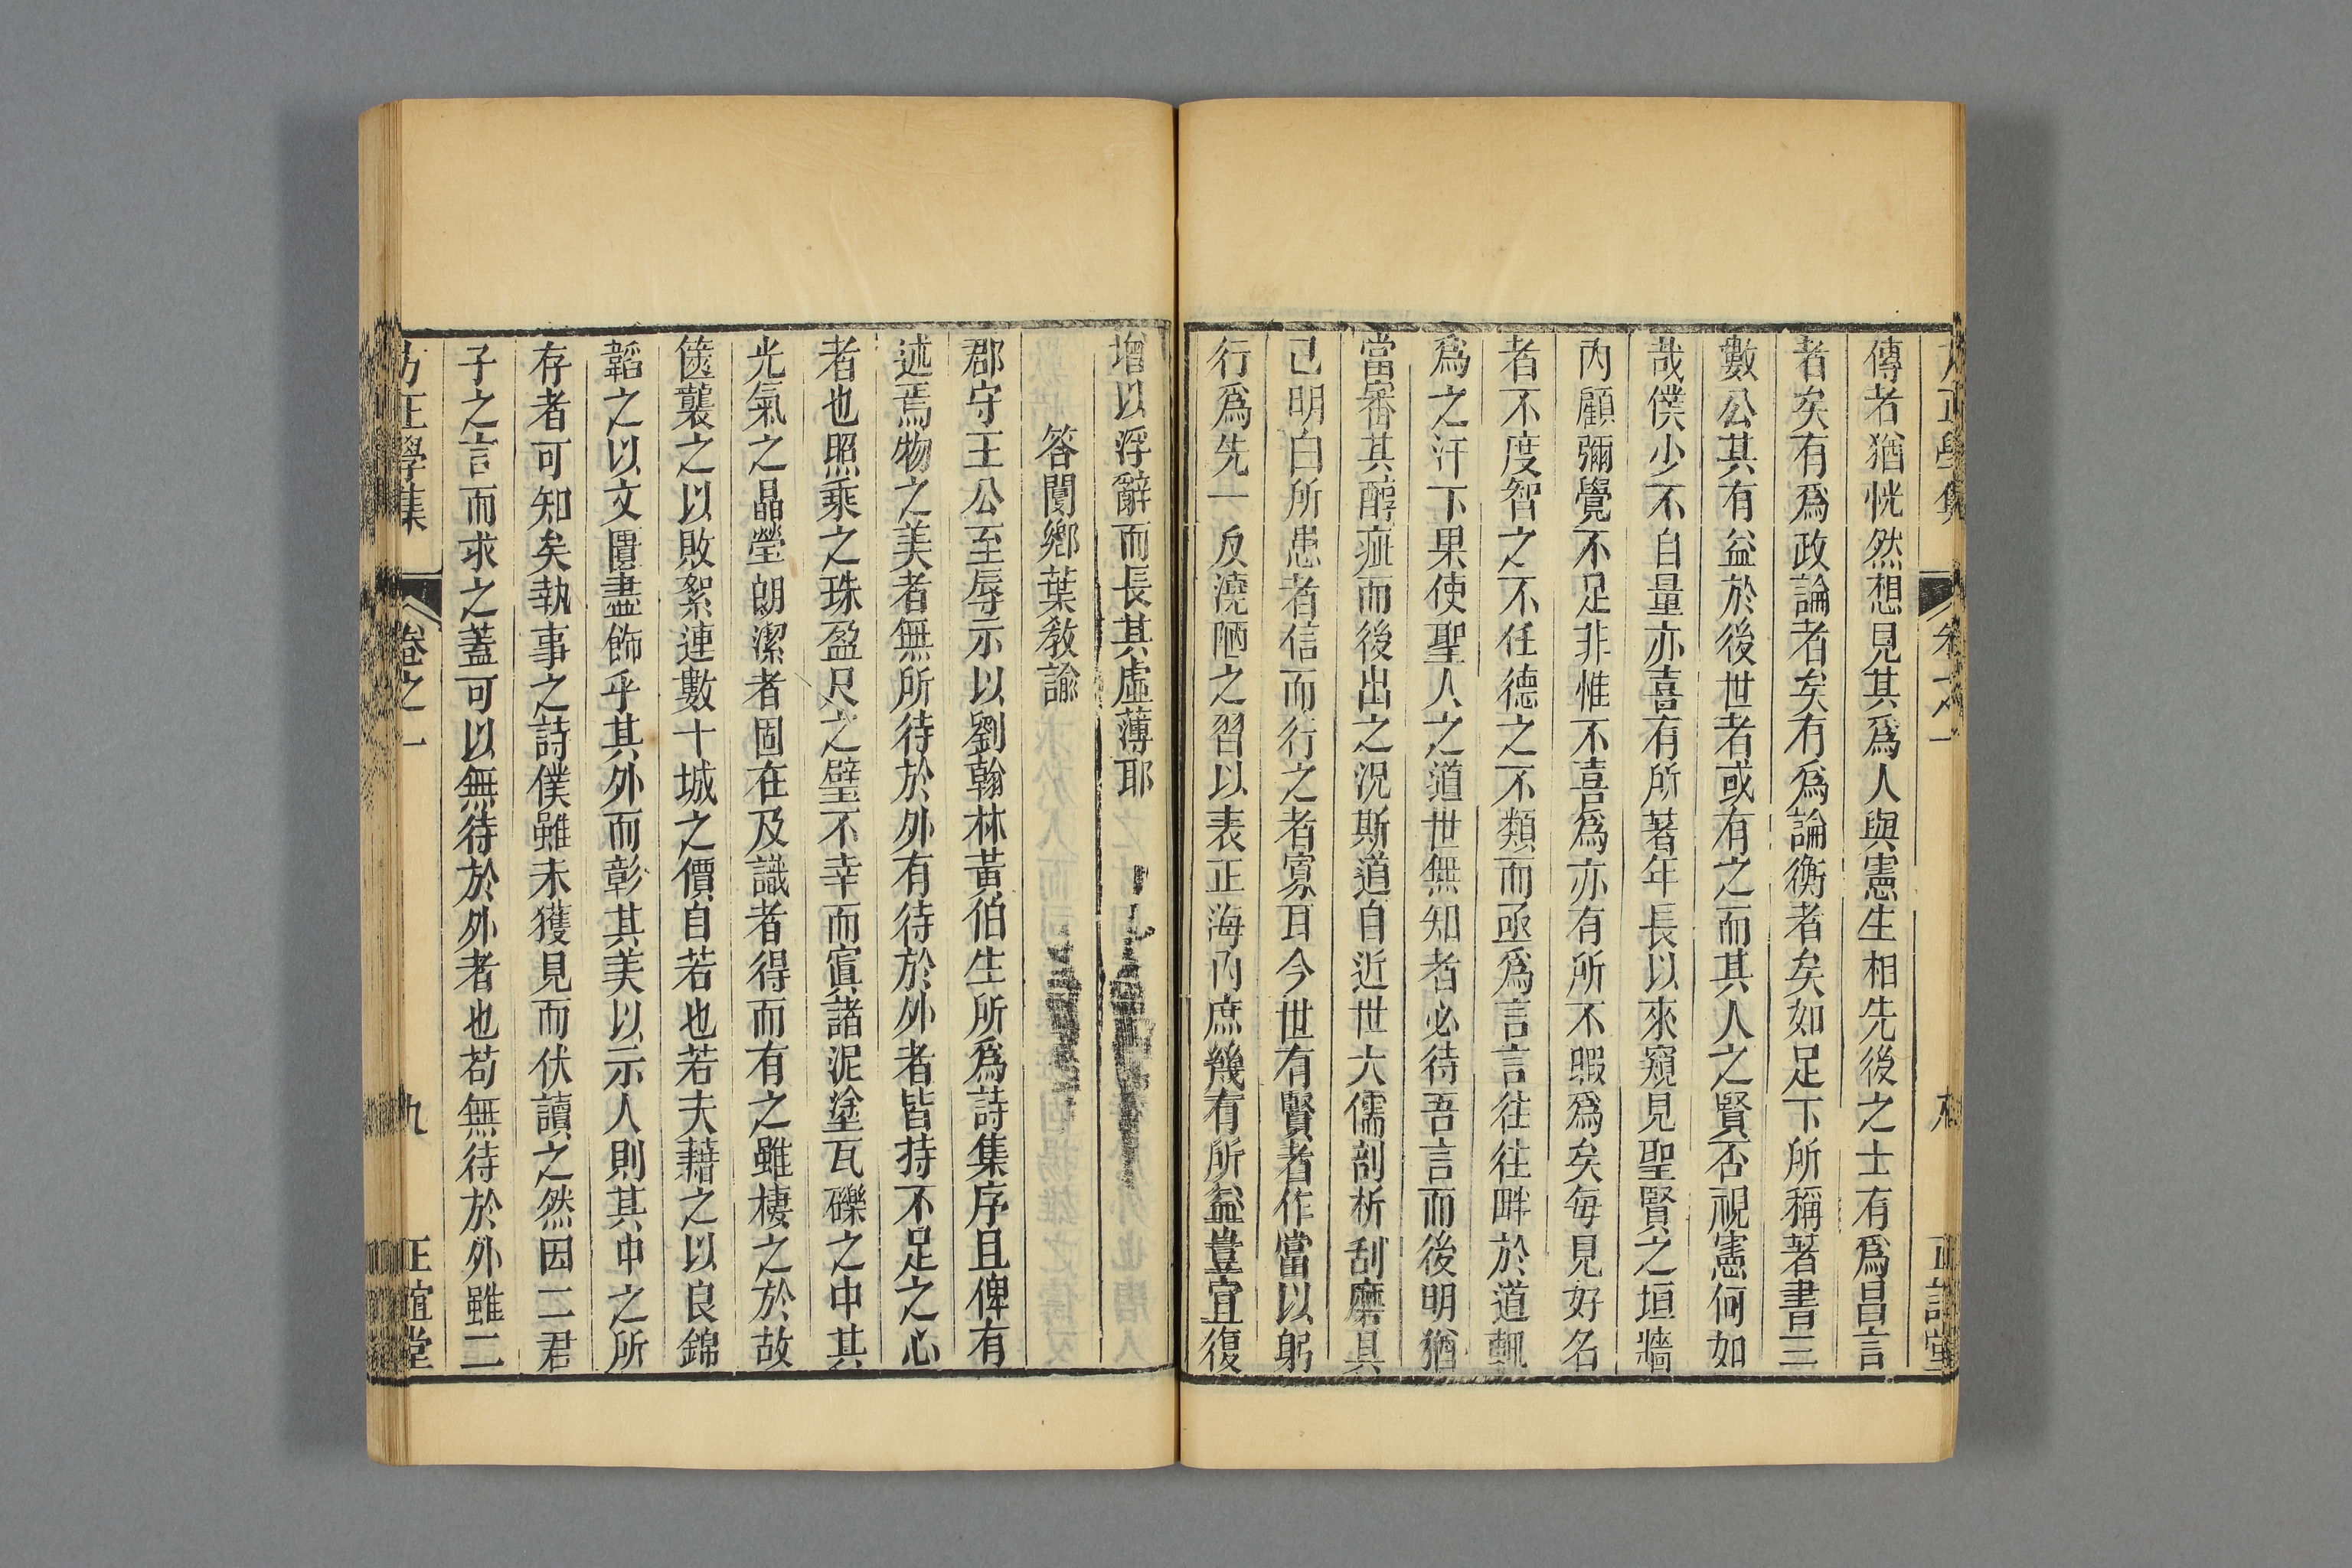 傳者猶恍然想見其爲人與憲生相先後之士有爲昌言
者矣有爲政論者矣有爲論衡者矣如足下所稱著書三
數公其有益於後世者或有之而其人之賢否視憲何如
哉僕少不自量亦喜有所著年長以來窺見聖賢之垣牆
內顧彌覺不足非惟不喜爲亦有所不暇爲矣每見好名
者不度智之不任德之不類而亟爲言言往往畔於道輒
爲之汗下果使聖人之道世無知者必待吾言而後明猶
當審其醇疵而後出之況斯道自近世大儒剖析刮磨具
已明白所患者信而行之者寡耳今世有賢者作當以躬
行爲先一反澆陋之習以表正海內庶幾有所益豈宜復
增以浮辭而長其虛薄耶
答閺鄉葉敎諭
郡守王公至辱示以劉翰林黃伯生所爲詩集序且俾有
述焉物之美者無所待於外有待於外者皆持不足之心
者也照乘之珠盈尺之璧不幸而寘諸泥塗瓦礫之中其
光氣之晶瑩朗潔者固在及識者得而有之雖棲之於故
篋襲之以敗絮連數十城之價自若也若夫藉之以良錦
韜之以文匱盡飾乎其外而彰其美以示人則其中之所
存者可知矣執事之詩僕雖未獲見而伏讀之然因二君
子之言而求之蓋可以無待於外者也苟無待於外雖二
方正學集 卷之一 九 正誼堂